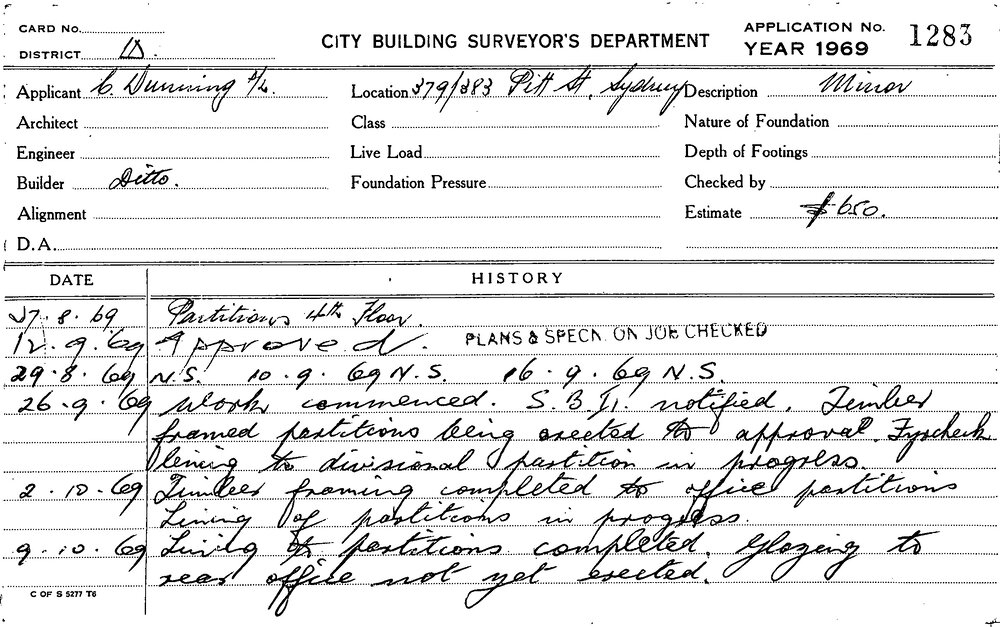 CARD No.
DISTRICT D.
CITY BUILDING SURVEYOR'S DEPARTMENT
APPLICATION No. 1283
YEAR 1969
Applicant C. Dunning P/L. Location 379/383 Pitt St, Sydney Description Minor
Architect Class Nature of Foundation
Engineer Live Load Depth of Footings
Builder Ditto. Foundation Pressure Checked by
Alignment Estimate $650.
D.A.
DATE HISTORY
27.8.69 Partitions 4th Floor.
12.9.69 Approved. PLANS & SPECN. ON JOB CHECKED
29.8.69 N.S. 10.9.69 N.S. 16.9.69 N.S.
26.9.69 Work commenced. S.B.D. notified. Timber
framed partitions being erected to approval. Fyrcheck
lining to divisional partition in progress.
2.10.69 Timber framing completed to office partitions
Lining of partitions in progress.
9.10.69 Lining of partitions completed. Glazing to
rear office not yet erected.
C OF S 5277 T6